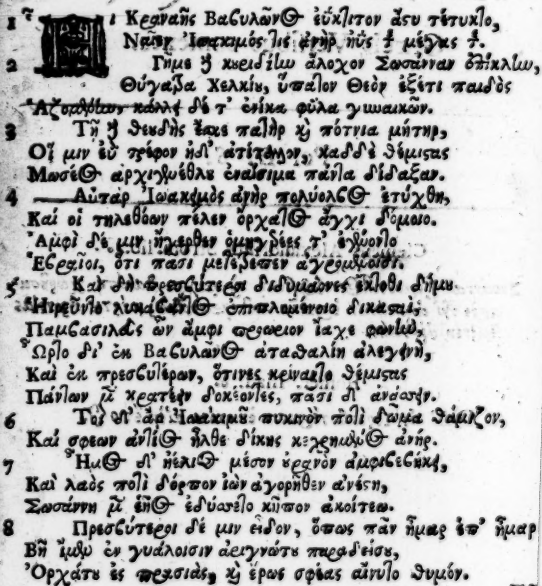 1 Κραναῆς Βαβυλῶνος ἐΰκλιτον ἄστυ τέτυκτο,
Ναῖεν Ἰωακιμός τις ἀνὴρ ἠΰς τε μέγας τε.
2 Γῆμε δὲ κυριδίην ἄλοχον Σωσάνναν ἐπίκλην,
Θύγατρα Χελκίου, ὕπατον Θεὸν ἐξέτι παιδὸς
κάλλει δέ τ' ἐνίκα φῦλα γυναικῶν.
3 Τῇ δὲ θευδὴς ἔσκε πατὴρ καὶ πότνια μήτηρ,
Οἵ μιν ἐῢ τρέφον ἠδ' ἀτίταλλον, καδδὲ θέμιστας
Μωσέος ἐναίσιμα πάντα δίδαξαν.
4 Αὐτὰρ Ἰωάκιμος ἀνὴρ πολύολβος ἐτύχθη,
Καί οἱ τηλεθόων πέλεν ὄρχατος ἄγχι δόμοιο.
Ἀμφὶ δέ μιν ἤγερθεν ὁμηγερέες τ' ἐγένοντο
Ἑβραῖοι, ὅτι πᾶσι μετέπρεπεν ἀγρομένοισι.
5 Καὶ δὴ πρεσβύτεροι διδυμάονες ἔκλοθι δήμου
Ἡιρεῦντο λυκάβαντος ἐπιπλομένοιο δικασταὶ,
Παμβασιλεὺς ὧν ἀμφὶ προσώπιον ἴαχε φωνὴν,
Ὦρτο δ' ἐκ Βαβυλῶνος ἀτασθαλίη ἀλεγεινὴ,
Καὶ ἐκ πρεσβυτέρων, ὅτινες κρίναντο θέμιστας
Πάντων μὲν κρατέειν δοκέοντες, πᾶσι δ' ἀνάσσειν.
6 Τοὶ δ' ἄρ' Ἰωακίμου πυκινὸν ποτὶ δῶμα θάμιζον,
Καί σφεων ἀντίος ἦλθε δίκης κεχρημένος ἀνήρ.
7 Ἦμος δ' ἠέλιος μέσον οὐρανὸν ἀμφιβεβήκει,
Καὶ λαὸς ποτὶ δόρπον ἰὼν ἀγορῆθεν ἀνέστη,
Σωσάννη μὲν ἑῆος ἐδύσετο κῆπον ἀκοίτεω.
8 Πρεσβύτεροι δέ μιν εἶδον, ὅπως πᾶν ἦμαρ ἐπ' ἦμαρ
Βῆ ἴμεν ἐν γυάλοισιν ἀριγνώτου παραδείσου,
Ὀρχάτου ἐς πρασιὰς, καὶ ἔρως σφέας αἴνυτο θυμόν.